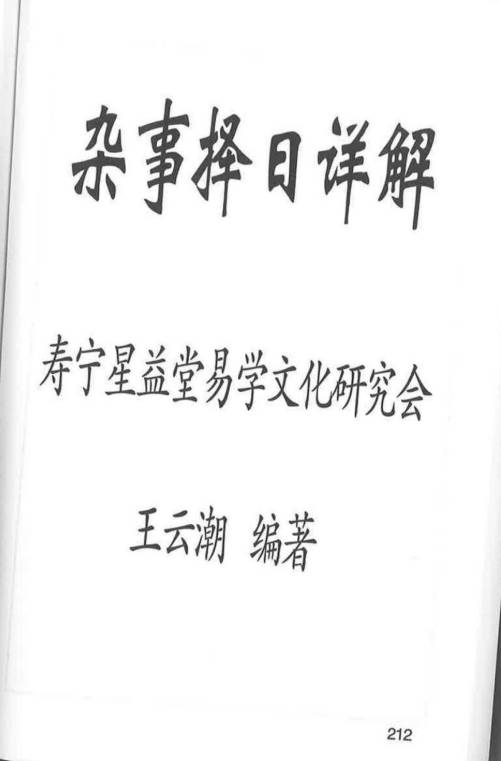 杂事择日详解
寿宁星益堂易学文化研究会
王云潮 编著
212